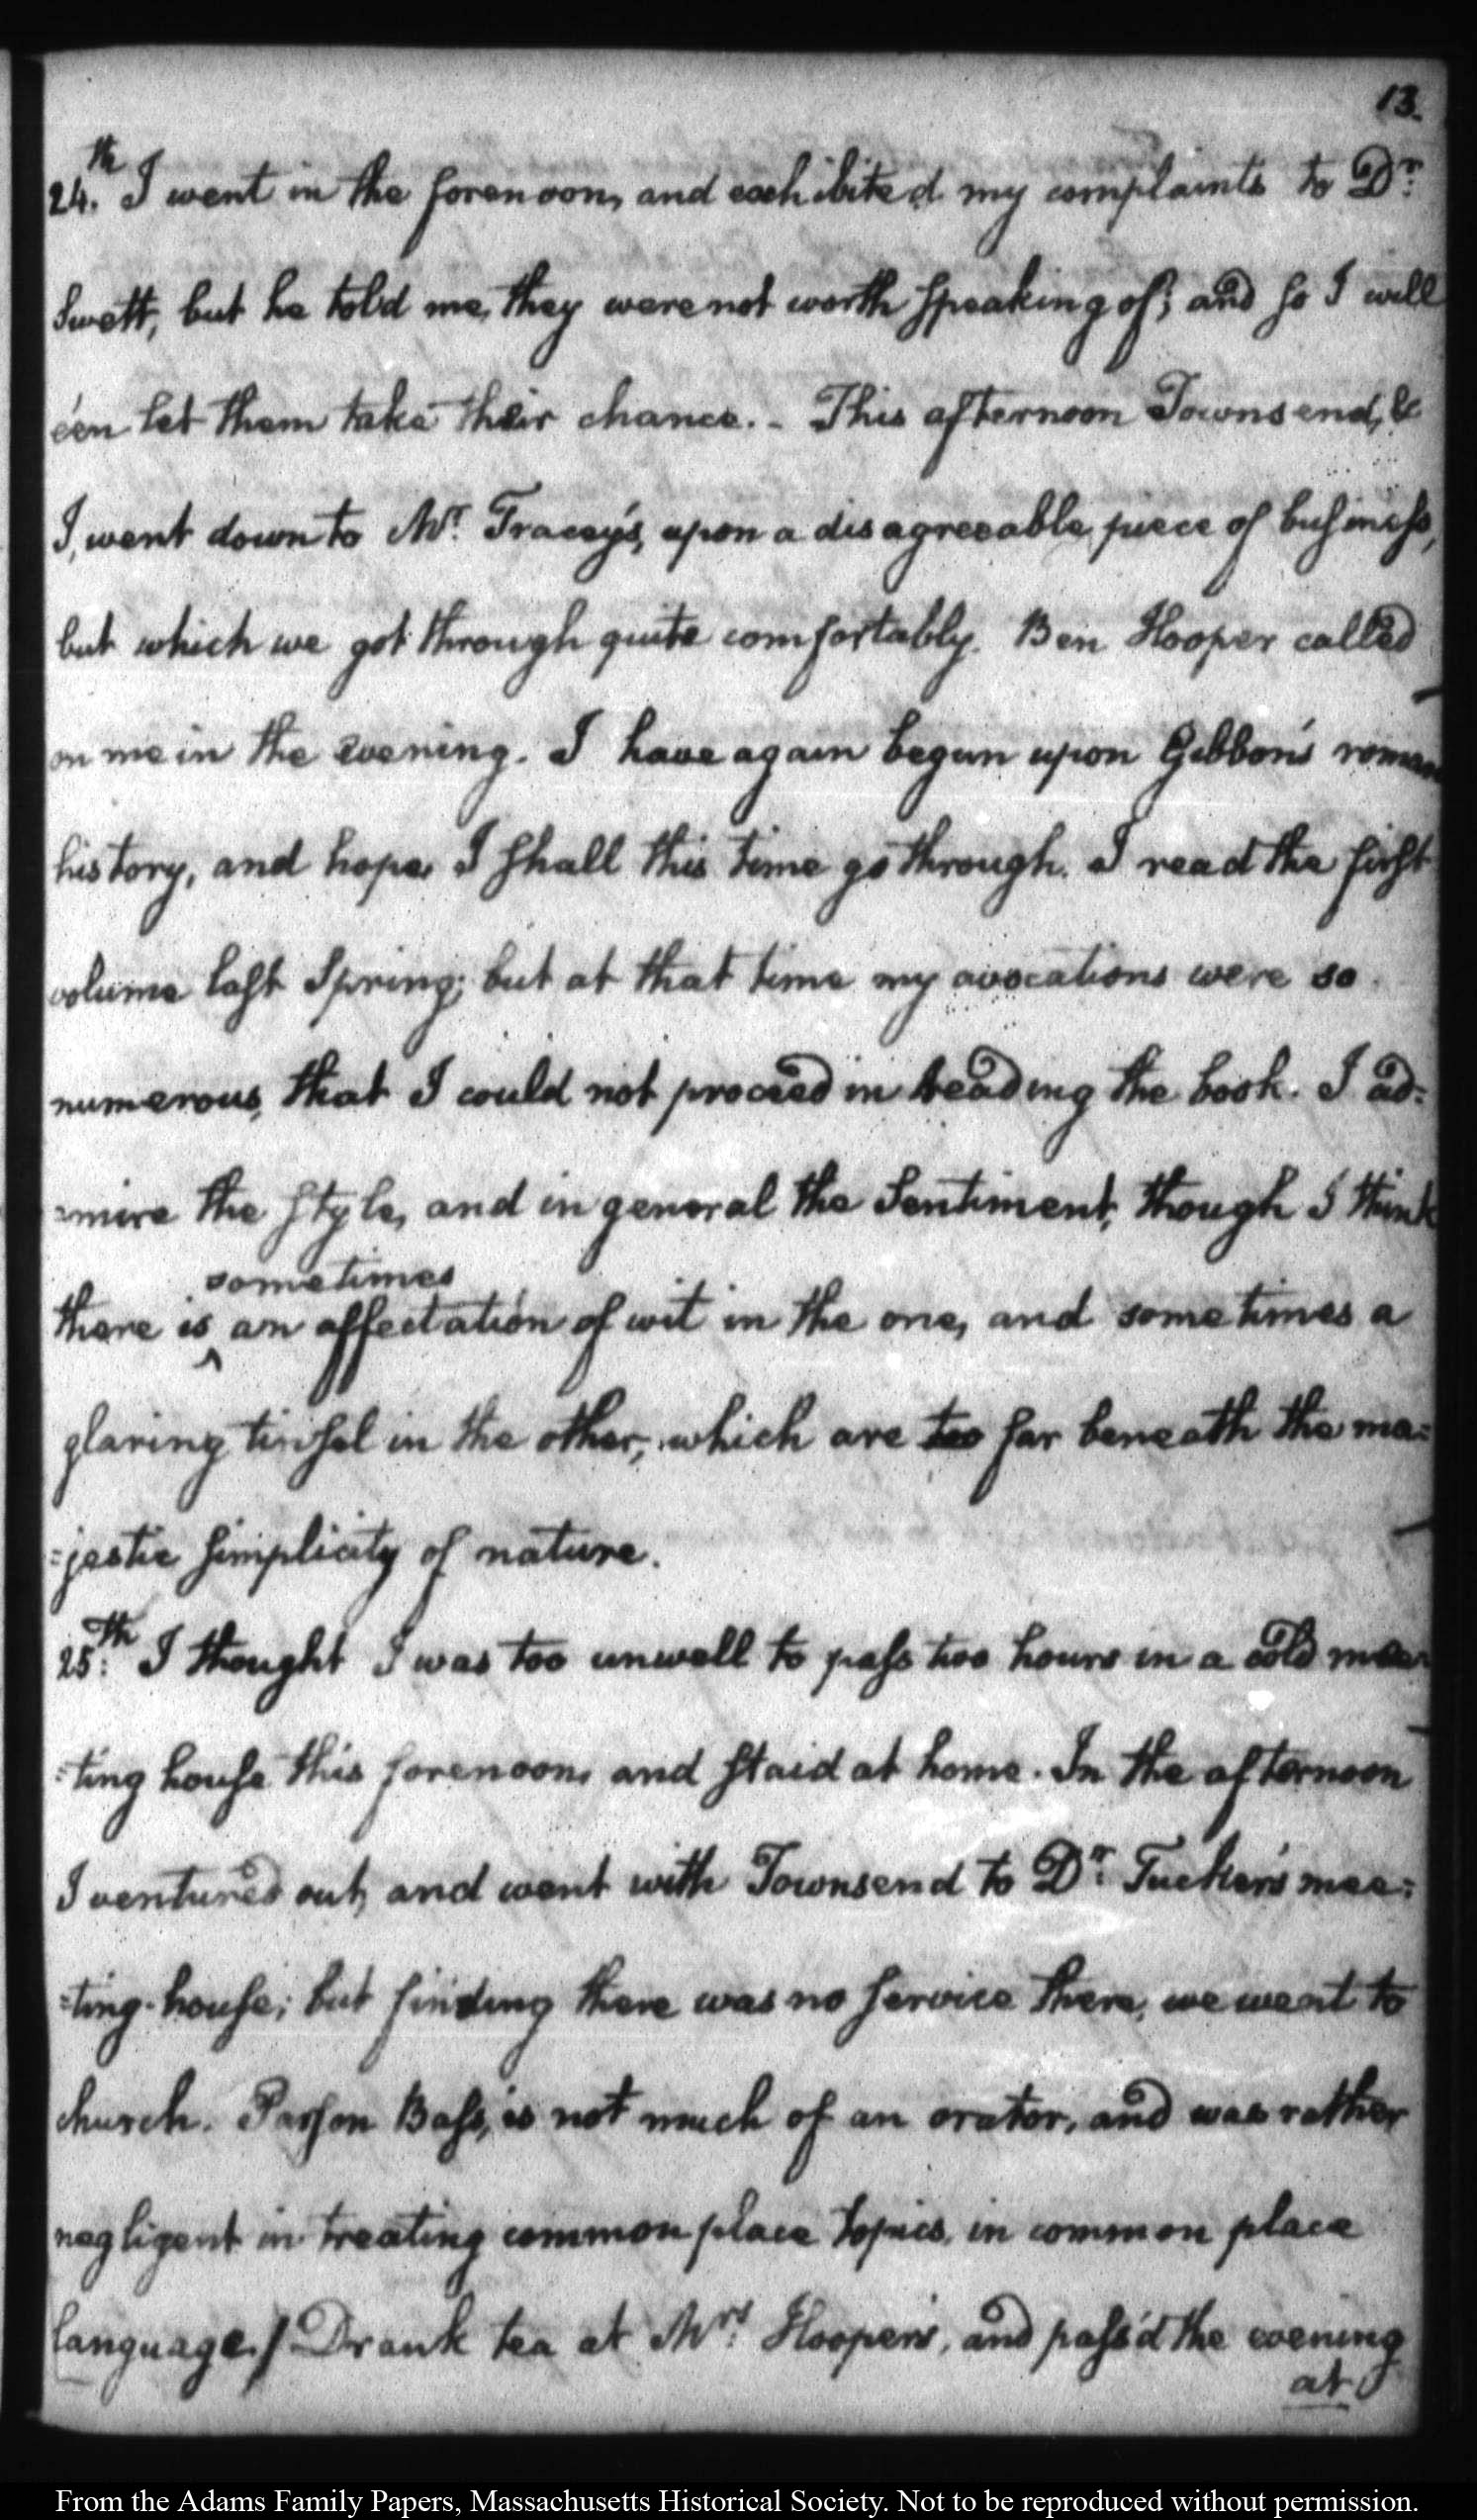 13.
24.th I went in the forenoon, and exhibited my complaints to Dr:
Swett, but he told me, they were not worth speaking of; and so I will
e'en let them take their chance. - This afternoon Townsend, &
I, went down to Mr. Tracey's, upon a disagreeable piece of business,
but which we got through quite comfortably. Ben Hooper called
on me in the evening. I have again begun upon Gibbon's roman
history, and hope, I shall this time go through. I read the first
volume last Spring; but at that time my avocations were so
numerous, that I could not proceed in reading the book. I ad:
=mire the style, and in general the Sentiment, though I think
sometimes
there is ^ an affectation of wit in the one, and sometimes a
glaring tinsel in the other, which are too far beneath the ma:
=jestic simplicity of nature.
25th: I thought I was too unwell to pass two hours in a cold mee:
=ting house this forenoon, and staid at home. In the afternoon
I ventured out, and went with Townsend to Dr: Tucker's mee:
=ting-house; but finding there was no service there, we went to
church. Parson Bass, is not much of an orator, and was rather
negligent in treating common place topics, in common place
language./ Drank tea at Mrs: Hooper's, and pass'd the evening
at
From the Adams Family Papers, Massachusetts Historical Society. Not to be reproduced without permission.